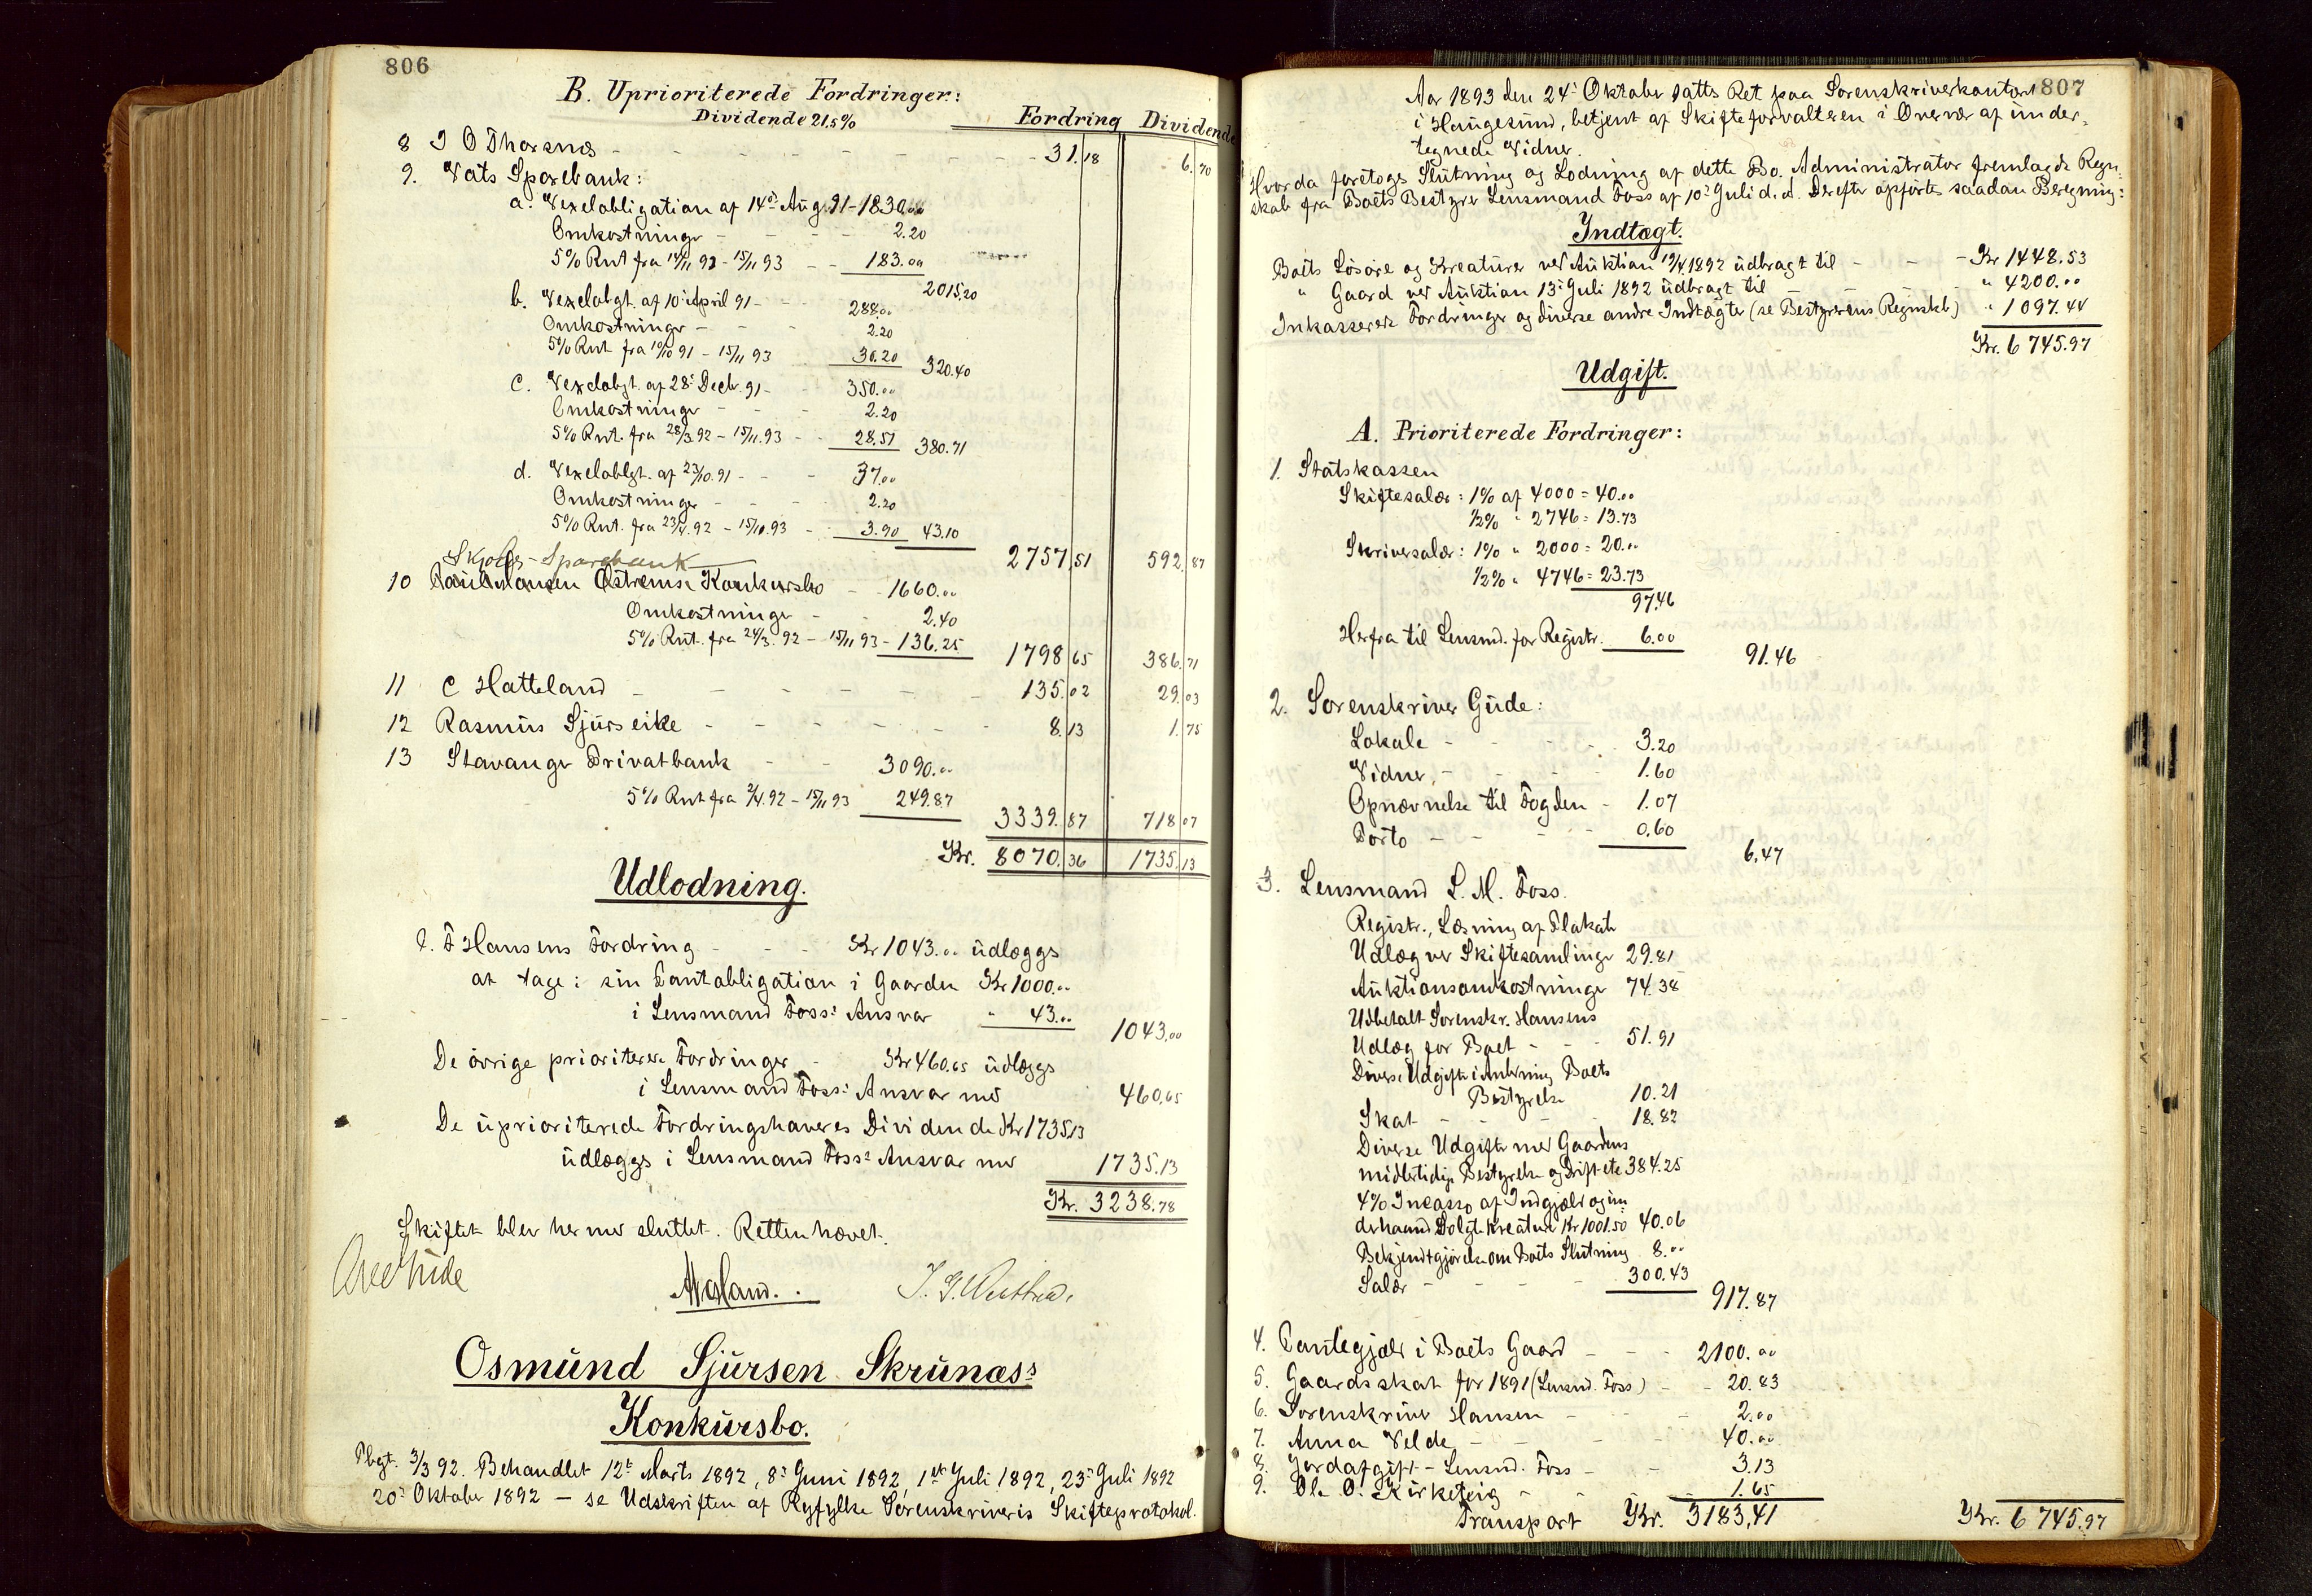 806
B. Uprioriterede Fordringer:
Dividende 21,5%
Fordring Dividende
8 I O Thorsnæs - 31.18 6.70
9. Vats Sparebank:
a. Vexelobligation af 14de Aug. 91 - 1830.00
Omkostninger - 2.20
5% Rent. fra 14/11 91 - 15/11 93 - 183.00
2015.20
b. Vexelobgt. af 10de April 91 - 288.00
Omkostninger - 2.20
5% Rent. fra 10/10 91 - 15/11 93 30.20 320.40
c. Vexelobgt. af 28de Decbr. 91 - 350.00
Omkostninger - 2.20
5% Rnt. fra 28/3 92 - 15/11.93 - 28.51 380.71
d. Vexeloblgt. af 23/10.91 - 37.00
Omkostninger - 2.20
5% Rnt. fra 23/4.92 - 15/10.93 - 3.90 43.10
2757.51 592.87
Skjolds - Sparebank
10 Konkursbo - 1660.00
Omkostninger - 2.40
5% Rnt. fra 24/3.92 - 15/11 93 - 136.25
1798.65 386.71
11 C Hatteland - 135.02 29.03
12 Rasmus Sjurseike - 8.13 1.75
13 Stavanger Privatbank - 3090.00
5% Rnt fra 2/4.92 - 15/11 93 249.87
3339.87 718.07
Kr. 8070.36 1735.13
Udlodning.
F Hansens Fordring - Kr 1043.00 udlægges
at tage: sin Pantobligation i Gaarden Kr 1000.00
i Lensmand Foss: Ansvar " 43.00
1043.00
De övrige prioriterede Fordringer - Kr 460.65 udlægges
i Lensmand Foss: Ansvar med 460.65
De uprioriterede Fordringshaveres Dividende Kr 1735.13
udlægges i Lensmand Foss: Ansvar med 1735.13
Kr. 3238.78
Skiftet blev hermed sluttet. Retten hævet.
Osmund Sjursen Skrunæs:
Konkursbo.
Pbgt. 3/3 92. Behandlet 12te Marts 1892, 8de Juni 1892, 1ste Juli 1892, 23de Juli 1892
20de Oktober 1892 - se Udskriften af Ryfylke Sorenskriveris Skifteprotokol.
807
Aar 1893 den 24de Oktober sattes Ret paa Sorenskriverkontoret
i Haugesund, betjent af Skifteforvalteren i Overvær af under-
tegnede Vidner.
Hvorda foretoges Slutning og Lodning af dette Bo. Administrator fremlagde Regn-
skab fra Boets Bestyrer Lensmand Foss af 10de Juli d.A. Derefter opförtes saadan Beregning:
Indtægt.
Boets Lösöre og Kreaturer ved Auktion 19/4 1892 udbragt til - Kr 1448.53
" Gaard ved Auktion 13de Juli 1892 udbragt til " 4200.00
Inkasserede Fordringer og diverse andre Indtægter (se Bestyrerens Regnskb) " 1097.44
Kr. 6745.97
Udgift.
A. Prioriterede Fordringer:
1. Statskassen
Skiftesalær: 1% af 4000 = 40.00
1/2% " 2746 = 13.73
Skriversalær: 1% " 2000 = 20.00
1/2% " 4746 = 23.73
97.46
Herfra til Lensmd. for Registr. 6.00
91.46
2. Sorenskriver Gude:
Lokale - 3.20
Vidner - 1.60
Opnævnelse til Fogden - 1.07
Porto - 0.60
6.47
3. Lensmand L. M. Foss.
Registr., Læsning af Plakat
Udlæg ved Skiftesamlinger 29.81
Auktionsomkostninger 74.38
Udbetalt Sorenskr. Hansens
Udlæg for Boet - 51.91
Diverse Udgifter i Anledning Boets
Bestyrelse 10.21
Skat - 18.82
Diverse Udgifter med Gaardens
midlertidige Bestyrelse og Drift etc 384.25
4% Inkasso af Indgjæld og un-
derhaanden Solgte Kreaturer Kr 1001.50 40.06
Bekjendtgjörelse om Boets Slutning 8.00
Salær - 300.43
917.87
4. Pantegjæld i Boets Gaard - 2100.00
5. Gaardsskat for 1891 (Lensmd. Foss) - 20.83
6. Sorenskriver Hansen - 2.00
7. Anna Velde - 40.00
8. Jordafgift - Lensmd. Foss - 3.13
9. Ole O. Kirketeig - 1.65
Transport Kr. 3183.41 Kr. 6745.97